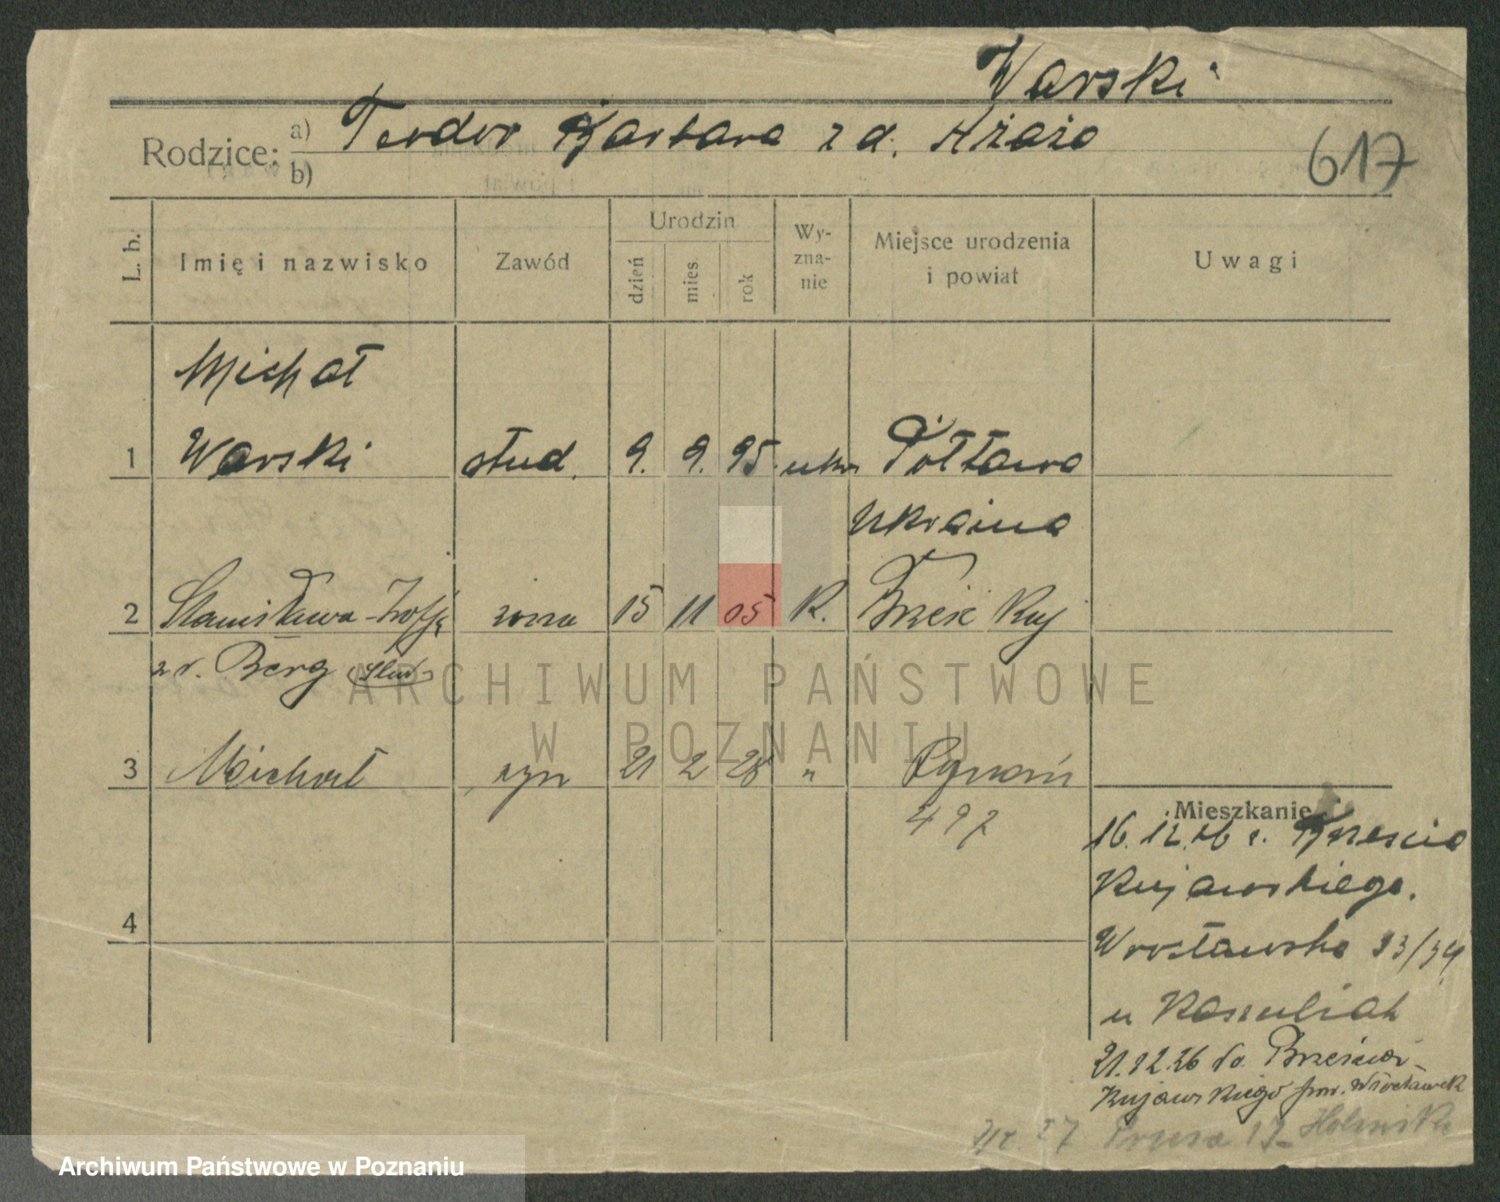 Warski
Rodzice: a) Teodor Barbara z d.
b)
617
L. b.
Imię i nazwisko
Zawód
Urodzin
dzień
mies
rok
Wy-
zna-
nie
Miejsce urodzenia
i powiat
Uwagi
Michał
1 Warski stud. 9. 9. 95. ukr Połtawa
Ukraina
2 Stanisława-Zofja żona 15 11 05 K. Brześć Kuj
z d. Berg (stud)
3 Michał syn 21 2 28 " Poznań
497
4
Mieszkanie
16.12.26 z. Brześcia
Kujawskiego.
Wrocławska 33/34
u
21.12.26 do Brześcia
Kujawskiego pow. Włocławek
27 Prusa 19
ARCHIWUM PAŃSTWOWE
W POZNANIU
Archiwum Państwowe w Poznaniu